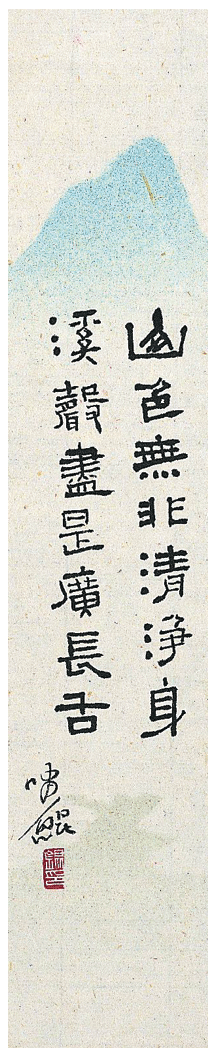 山色無非清淨身
溪聲盡是廣長舌
嘯鯤